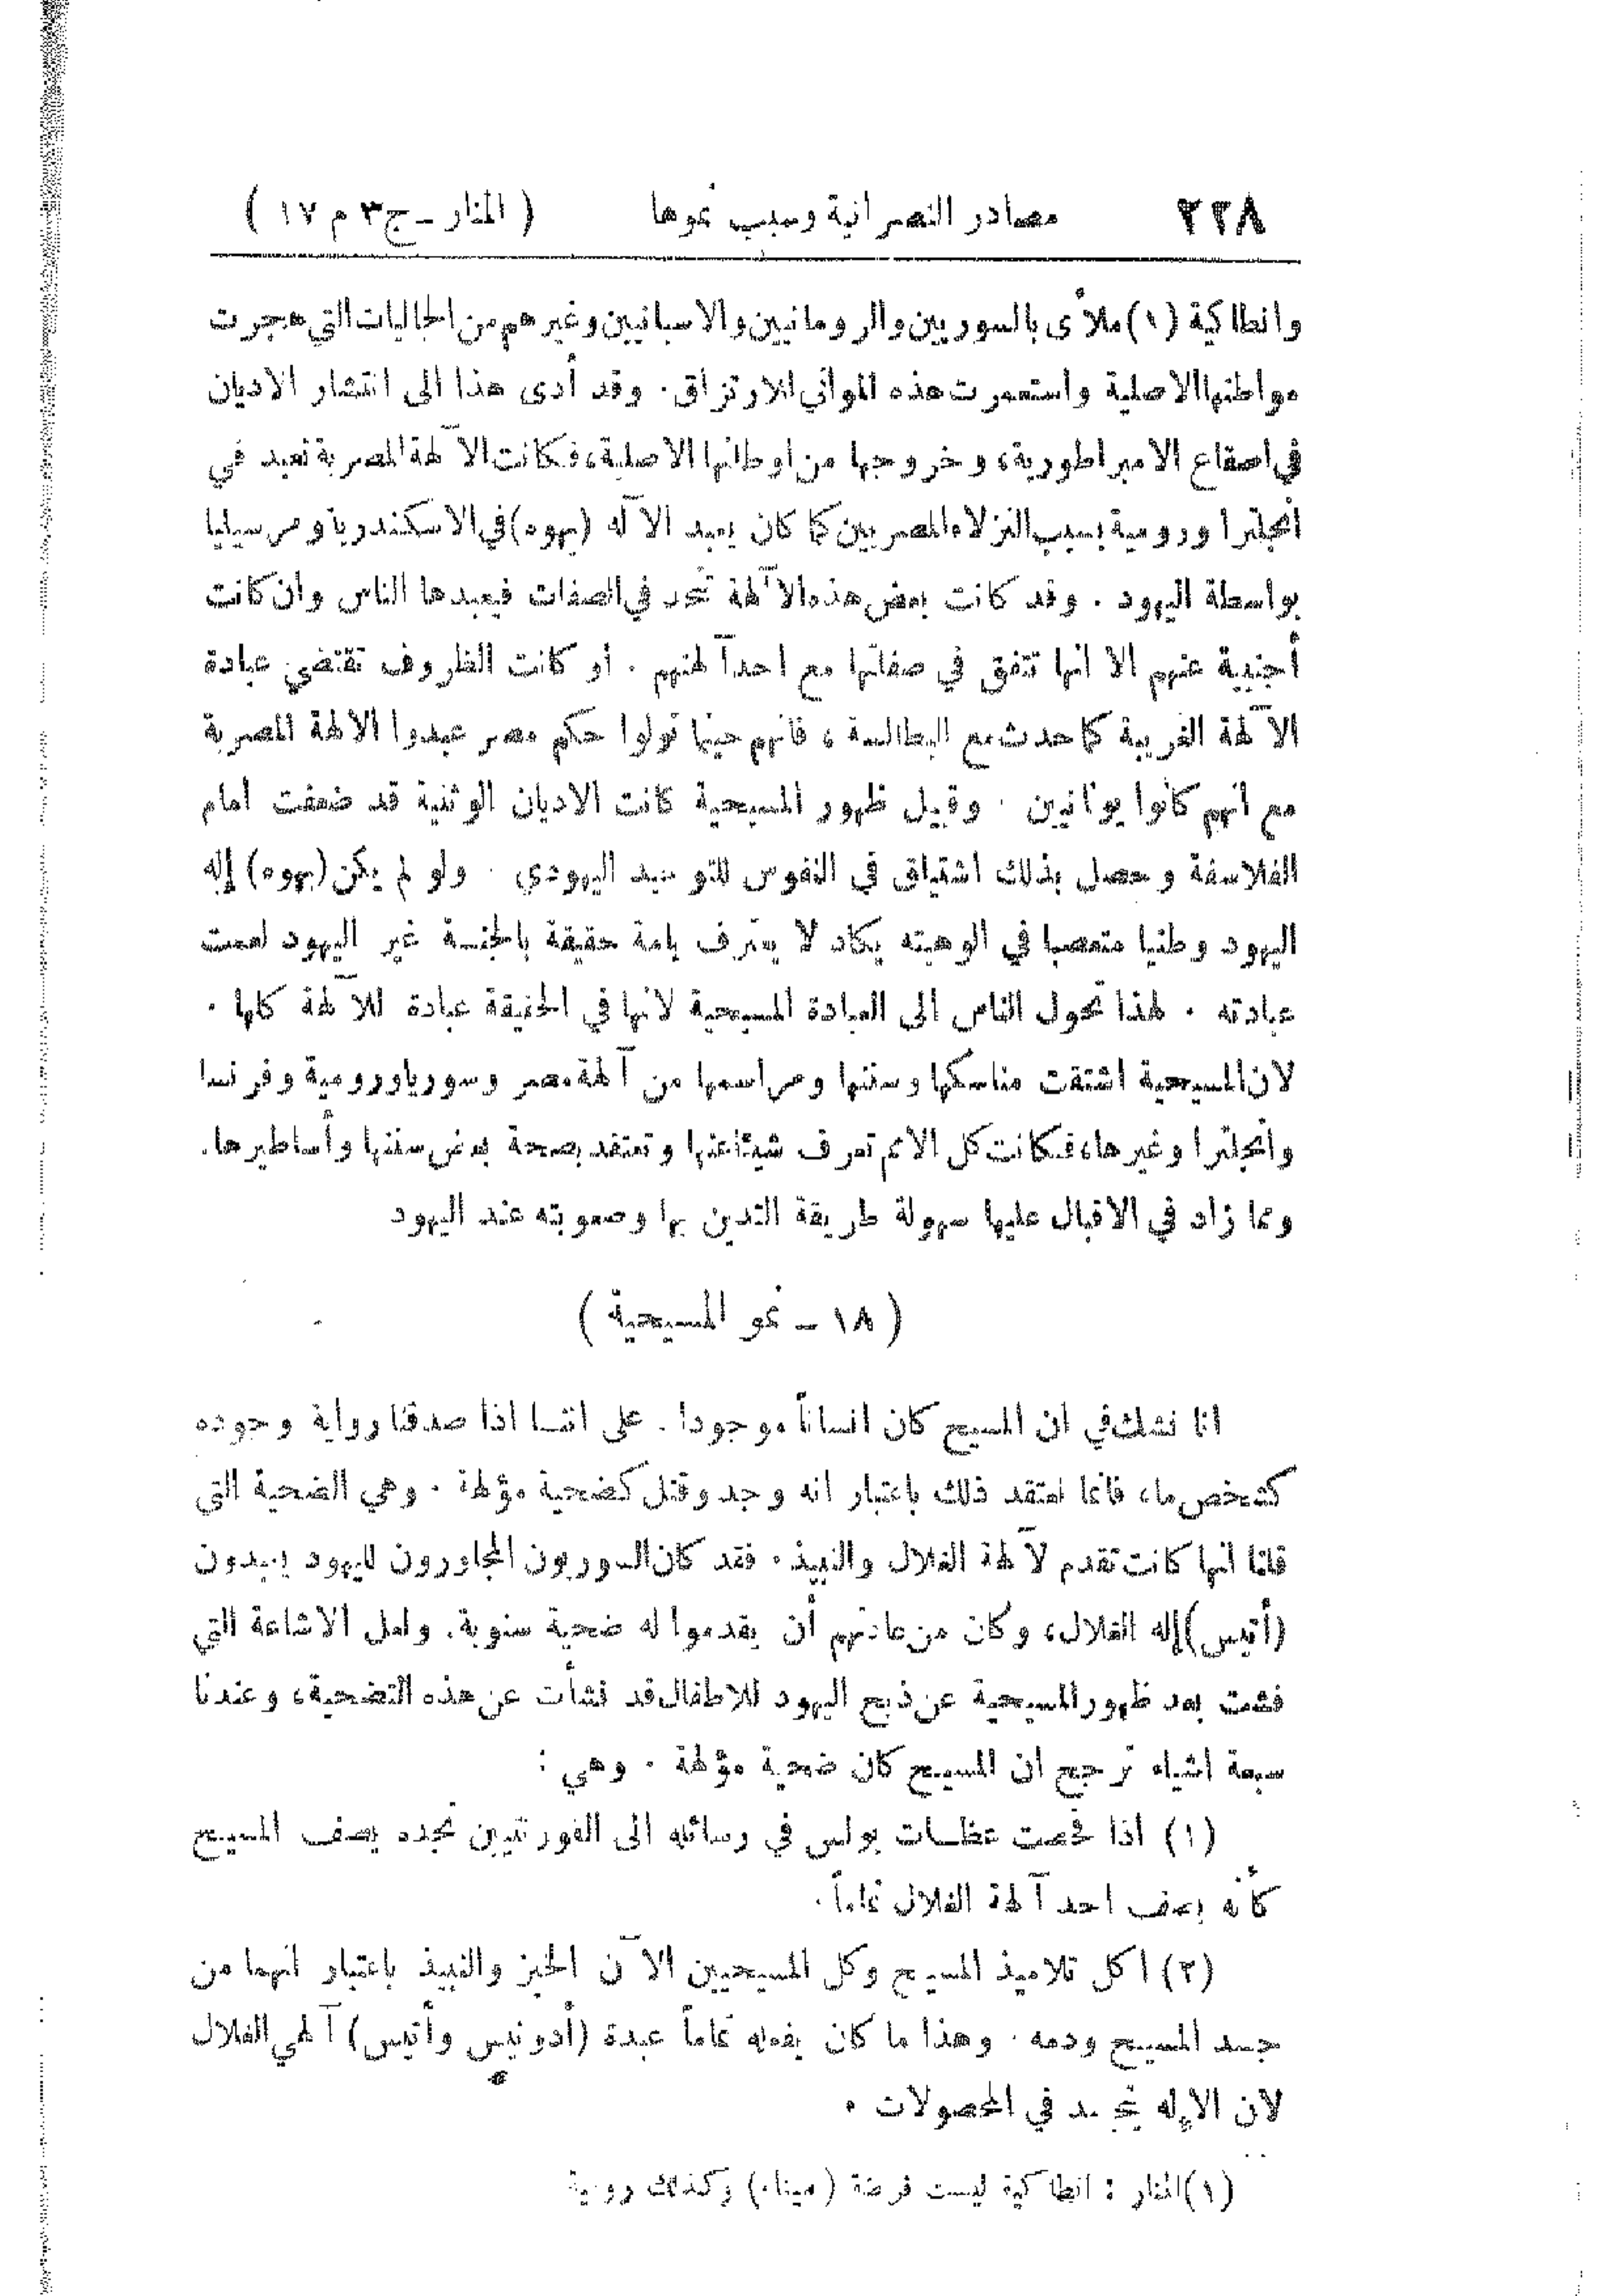 ٢٢٨ مصادر النصرانية وسبب نموها ( المنار ـ ج٣ م ١٧ )
وانطاكية (١) ملأى بالسوريين والرومانيين والاسبانيين وغيرهم من الجاليات التي هجرت
مواطنها الاصلية واستعمرت هذه الموانئ للارتزاق . وقد أدى هذا الى انتشار الاديان
في اصقاع الامبراطورية، وخروجها من اوطانها الاصلية، فكانت الآلهة المصرية تعبد في
انجلترا ورومية بسبب النزلاء المصريين كما كان يعبد الآله (يهوه) في الاسكندرية ومرسيليا
بواسطة اليهود . وقد كانت بعض هذه الآلهة تتحد في الصفات فيعبدها الناس وان كانت
أجنبية عنهم الا انها تتفق في صفاتها مع احد آلهتهم . أو كانت الظروف تقتضي عبادة
الآلهة الغريبة كما حدث مع البطالسة ، فانهم حينما تولوا حكم مصر عبدوا الالهة المصرية
مع انهم كانوا يونانيين . وقبيل ظهور المسيحية كانت الاديان الوثنية قد ضعفت امام
الفلاسفة وحصل بذلك اشتياق في النفوس للتوحيد اليهودي . ولو لم يكن (يهوه) إله
اليهود وطنيا متعصبا في الوهيته يكاد لا يعترف بامة حقيقة بالجنة غير اليهود لعمت
عبادته . لهذا تحول الناس الى العبادة المسيحية لانها في الحقيقة عبادة للآلهة كلها .
لان المسيحية اشتقت مناسكها وسننها ومراسمها من آلهة مصر وسوريا ورومية وفرنسا
وانجلترا وغيرها، فكانت كل الامم تعرف شيئا عنها وتعتقد بصحة بعض سننها وأساطيرها.
ومما زاد في الاقبال عليها سهولة طريقة التدين بها وصعوبته عند اليهود
( ١٨ ـ نمو المسيحية )
انا نشك في ان المسيح كان انساناً موجودا . على اننا اذا صدقنا رواية وجوده
كشخص ما، فانما نعتقد ذلك باعتبار انه وجد وقتل كضحية مؤلهة . وهي الضحية التي
قلنا انها كانت تقدم لآلهة الغلال والنبيذ . فقد كان السوريون المجاورون لليهود يعبدون
(أتيس) إله الغلال، وكان من عادتهم أن يقدموا له ضحية سنوية. ولعل الاشاعة التي
فشت بعد ظهور المسيحية عن ذبح اليهود للاطفال قد نشأت عن هذه التضحية، وعندنا
سبعة اشياء ترجح ان المسيح كان ضحية مؤلهة . وهي :
(١) اذا فحصت عظات بولس في رسائله الى القورنتيين تجده يصف المسيح
كأنه يصف احد آلهة الغلال تماماً .
(٢) اكل تلاميذ المسيح وكل المسيحيين الآن الخبز والنبيذ باعتبار انهما من
جسد المسيح ودمه . وهذا ما كان يفعله تماماً عبدة (أدونيس وأتيس) آلهي الغلال
لان الإله تجسد في المحصولات .
(١) المنار : انطاكية ليست فرضة (ميناء) وكذلك رومية